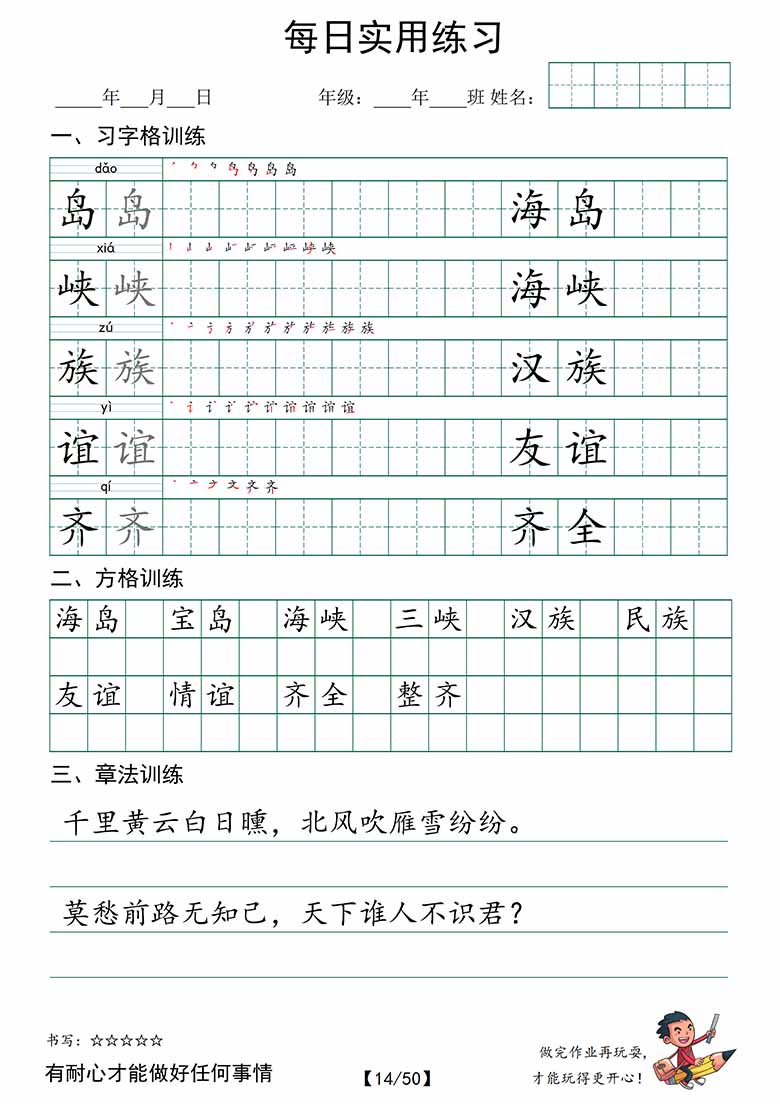 每日实用练习
____年___月___日 年级：____年____班 姓名：
一、习字格训练
dǎo
岛 岛 海 岛
xiá
峡 峡 海 峡
zú
族 族 汉 族
yì
谊 谊 友 谊
qí
齐 齐 齐 全
二、方格训练
海 岛 宝 岛 海 峡 三 峡 汉 族 民 族
友 谊 情 谊 齐 全 整 齐
三、章法训练
千里黄云白日曛，北风吹雁雪纷纷。
莫愁前路无知己，天下谁人不识君？
书写：☆☆☆☆☆
有耐心才能做好任何事情
【14/50】
做完作业再玩耍，
才能玩得更开心！